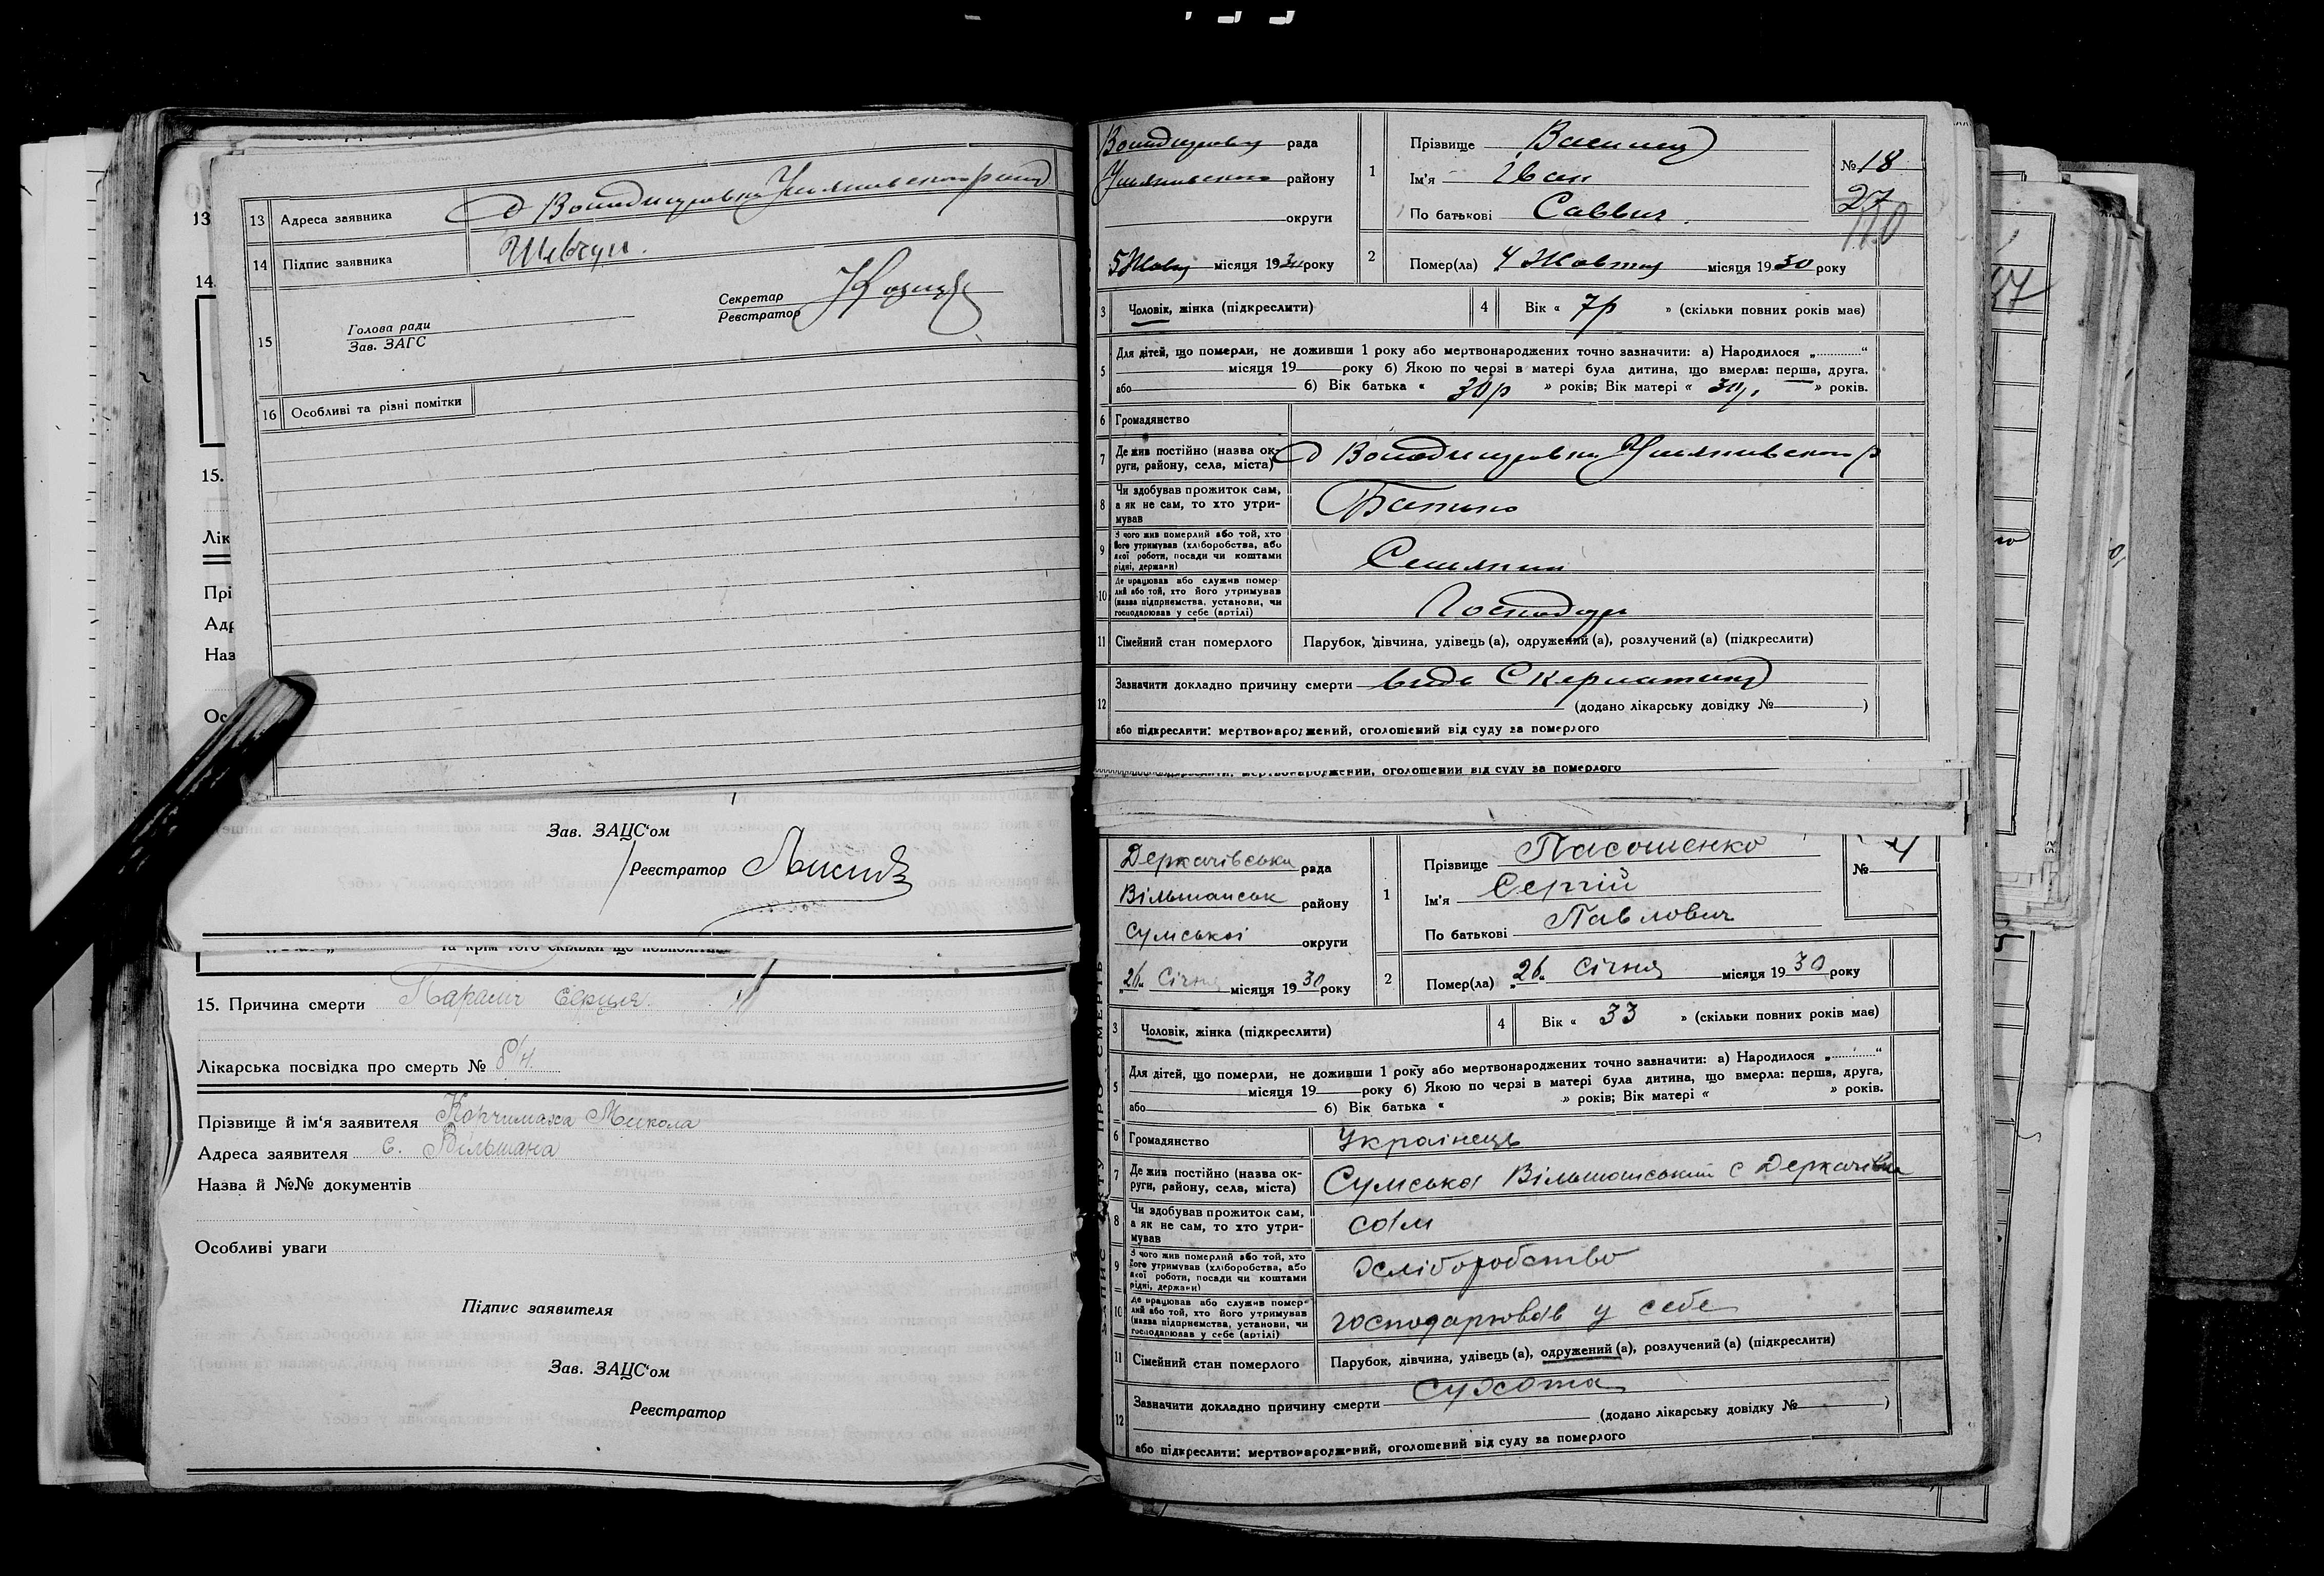 13 Адреса заявника
14 Підпис заявника Шевчук.
Секретар
Реєстратор
Голова ради
15 Зав. ЗАГС
16 Особливі та різні помітки
13
14
15.
Лік
Прі
Адр
Наз
Ос
Зав. ЗАЦС‘ом
Реєстратор
15. Причина смерти Параліч серця.
Лікарська посвідка про смерть № б/н.
Прізвище й ім‘я заявителя Микола
Адреса заявителя с. Вільшана
Назва й №№ документів
Особливі уваги
Підпис заявителя
Зав. ЗАЦС‘ом
Реєстратор
рада
району
округи
5 місяця 1930 року
1 Прізвище
Ім'я Іван
По батькові Саввич.
№ 18
27
110
2 Помер(ла) 4 Жовтня місяця 1930 року
3 Чоловік, жінка (підкреслити) 4 Вік « 7р » (скільки повних років має)
5 Для дітей, що померли, не доживши 1 року або мертвонароджених точно зазначити: а) Народилося „ “
місяця 19 року б) Якою по черзі в матері була дитина, що вмерла: перша, друга.
або б) Вік батька « 30р » років; Вік матері « 30р. » років.
6 Громадянство
7 Де жив постійно (назва округи, району, села, міста)
8 Чи здобував прожиток сам, а як не сам, то хто утримував Батько
9 З чого жив померлий або той, хто його утримував (хліборобства, або якої роботи, посади чи коштами рідні, держави) Селянин
10 Де працював або служив померлий або той, хто його утримував (назва підприємства, установи, чи господарював у себе (артілі) Господарь
11 Сімейний стан померлого Парубок, дівчина, удівець (а), одружений (а), розлучений (а) (підкреслити)
12 Зазначити докладно причину смерти видь Скерлатину
(додано лікарську довідку № )
або підкреслити: мертвонароджений, оголошений від суду за померлого
мертвонароджений, оголошений від суду за померлого
Деркачівська рада
Вільшанськ району
Сумської округи
„26“ Січня місяця 1930 року
1 Прізвище Пасошенко
Ім'я Сергій
По батькові Павлович
№ 4
2 Помер(ла) „26“ Січня місяця 1930 року
3 Чоловік, жінка (підкреслити) 4 Вік « 33 » (скільки повних років має)
5 Для дітей, що померли, не доживши 1 року або мертвонароджених точно зазначити: а) Народилося „ “
місяця 19 року б) Якою по черзі в матері була дитина, що вмерла: перша, друга,
або б) Вік батька « » років; Вік матері « » років.
6 Громадянство Українець
7 Де жив постійно (назва округи, району, села, міста) Сумська Вільшанський с Деркачівка
8 Чи здобував прожиток сам, а як не сам, то хто утримував сам
9 З чого жив померлий або той, хто його утримував (хліборобства, або якої роботи, посади чи коштами рідні, держави) Хліборобство
10 Де працював або служив померлий або той, хто його утримував (назва підприємства, установи, чи господарював у себе (артілі) господарював у себе
11 Сімейний стан померлого Парубок, дівчина, удівець (а), одружений (а), розлучений (а) (підкреслити)
12 Зазначити докладно причину смерти Сухота
(додано лікарську довідку № )
або підкреслити: мертвонароджений, оголошений від суду за померлого